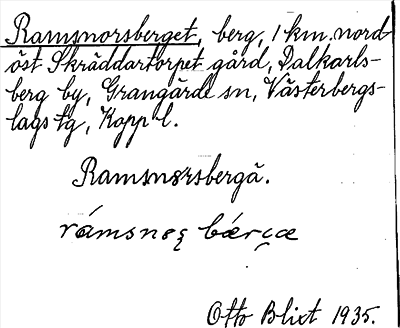 Ramsnorsberget, berg, 1 km. nord-
öst Skräddartorpet gård, Dalkarls-
berg by, Grangärde sn, Västerbergs-
lags tg, Kopp. l.
Ramsnørsbergä.
rámsnøș bǽrçæ
Otto Blixt 1935.